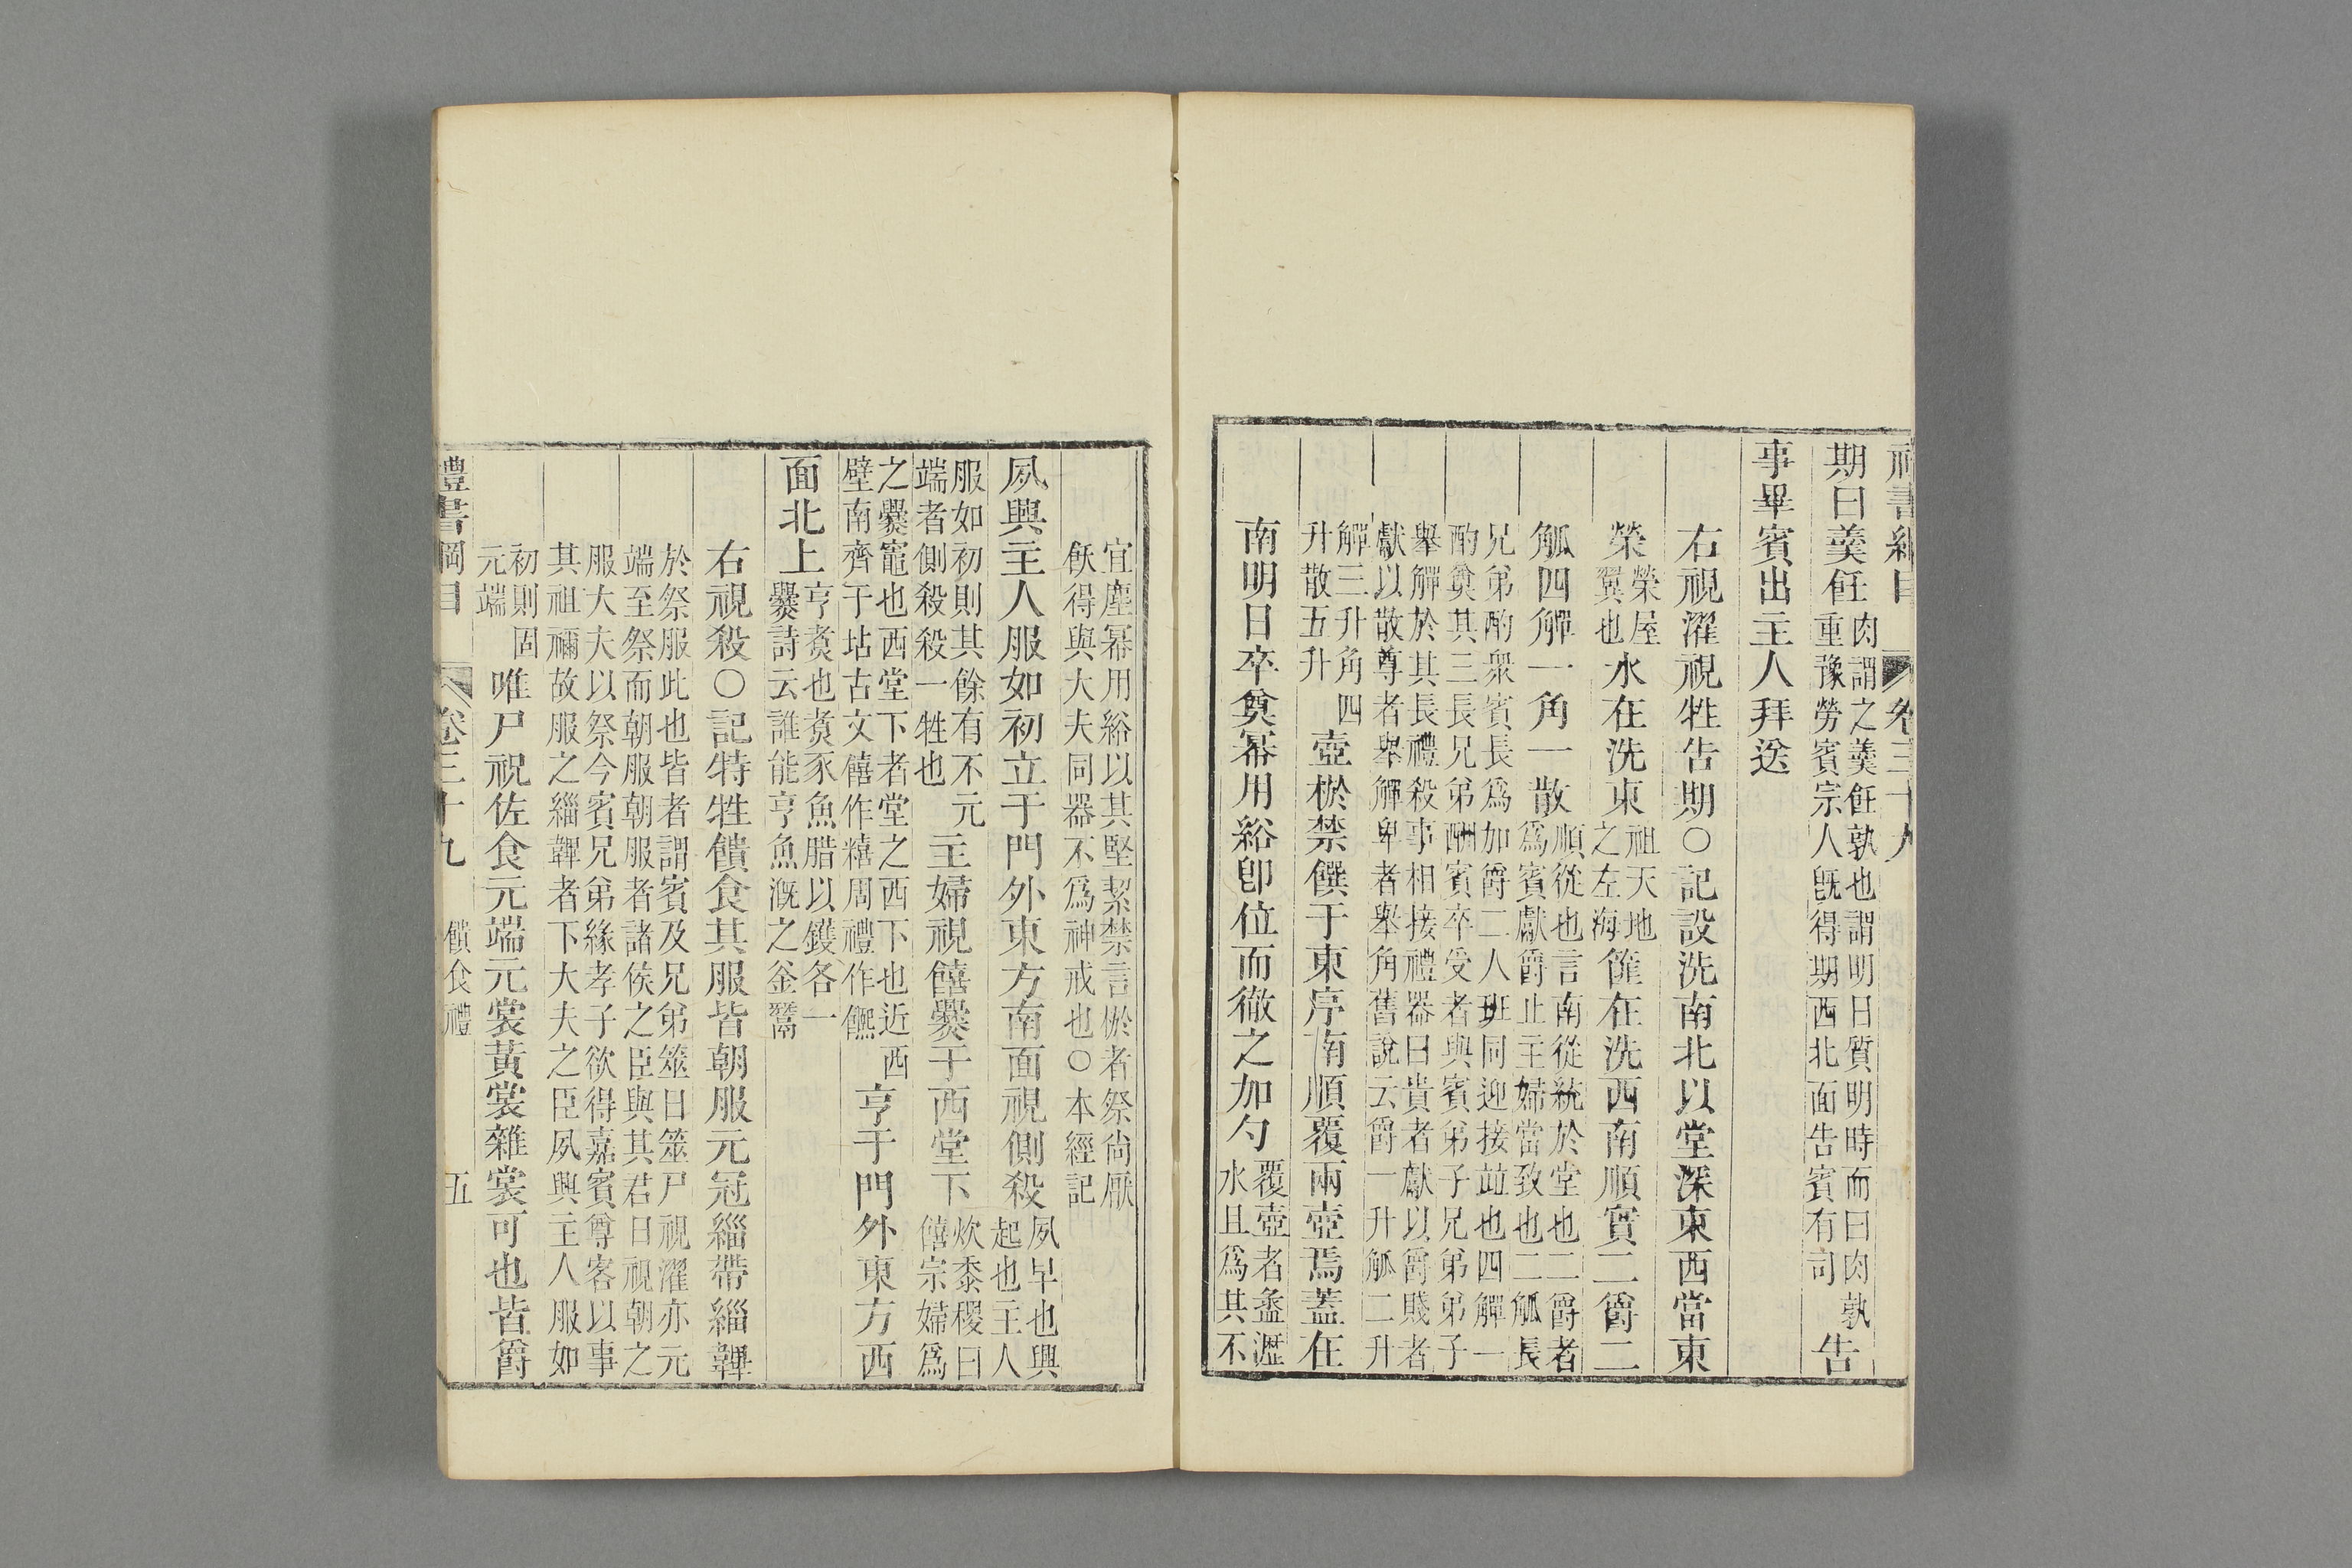 禮書綱目 卷三十九
期曰羹飪肉謂之羹飪孰也謂明日質明時而曰肉孰重豫勞賓宗人既得期西北面告賓有司告
事畢賓出主人拜送
右視濯視牲告期○記設洗南北以堂深東西當東
榮榮屋翼也水在洗東祖天地之左海篚在洗西南順實二爵二
觚四觶一角一散順從也言南從統於堂也二爵者爲賓獻爵止主婦當致也二觚長
兄弟酌衆賓長爲加爵二人班同迎接並也四觶一酌奠其三長兄弟酬賓卒受者與賓弟子兄弟弟子
舉觶於其長禮殺事相接禮器曰貴者獻以爵賤者獻以散尊者舉觶卑者舉角舊說云爵一升觚二升
觶三升角四升散五升壺棜禁饌于東序南順覆兩壺焉蓋在
南明日卒奠冪用綌卽位而徹之加勺覆壺者盝瀝水且爲其不
宜塵冪用綌以其堅絜禁言棜者祭尙厭飫得與大夫同器不爲神戒也○本經記
夙興主人服如初立于門外東方南面視側殺夙早也興起也主人
服如初則其餘有不元端者側殺殺一牲也主婦視饎爨于西堂下炊黍稷曰饎宗婦爲
之爨竈也西堂下者堂之西下也近西壁南齊于坫古文饎作糦周禮作䭜亨于門外東方西
面北上亨煑也煑豕魚腊以鑊各一爨詩云誰能亨魚漑之釜鬵
右視殺○記特牲饋食其服皆朝服元冠緇帶緇韠
於祭服此也皆者謂賓及兄弟筮日筮尸視濯亦元端至祭而朝服朝服者諸侯之臣與其君日視朝之
服大夫以祭今賓兄弟緣孝子欲得嘉賓尊客以事其祖禰故服之緇韠者下大夫之臣夙興主人服如
初則固元端唯尸祝佐食元端元裳黃裳雜裳可也皆爵
禮書綱目 卷三十九 饋食禮 五